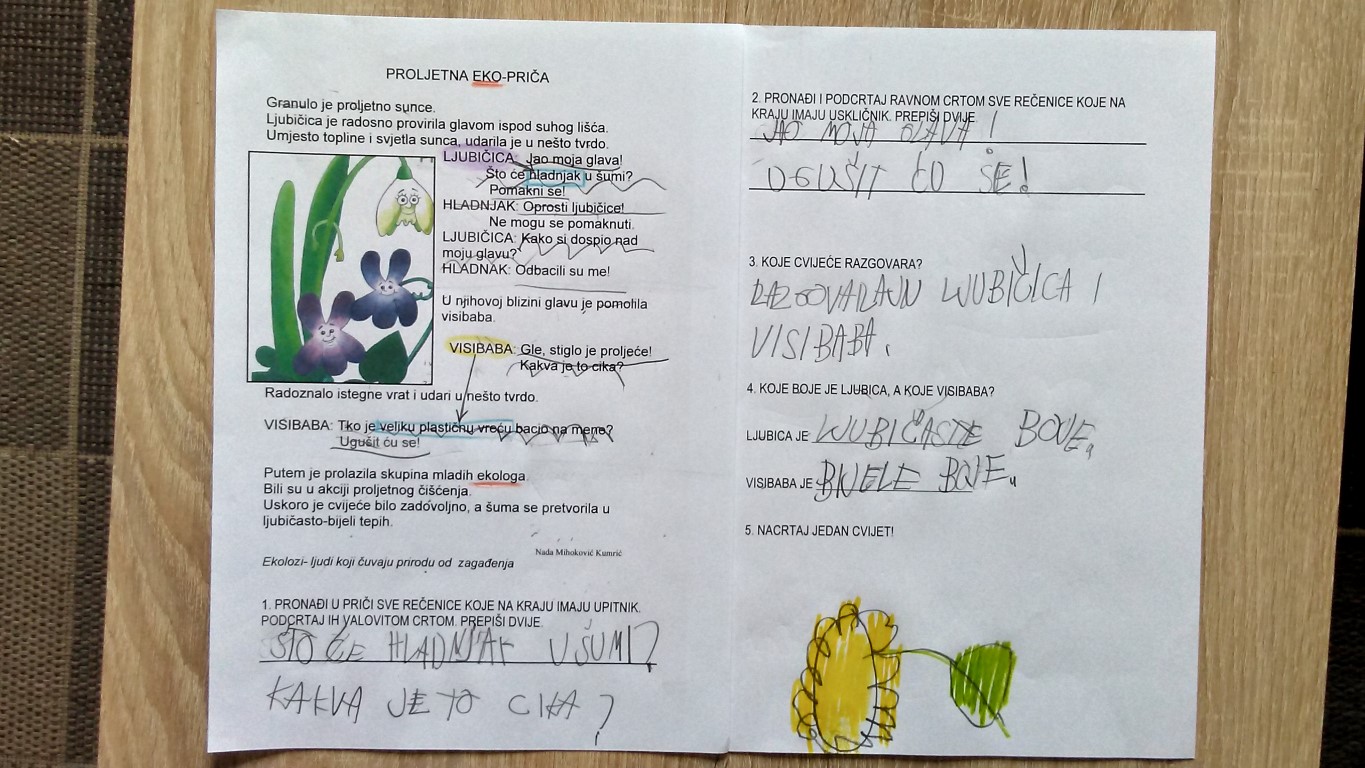 PROLJETNA EKO-PRIČA
Granulo je proljetno sunce.
Ljubičica je radosno provirila glavom ispod suhog lišća.
Umjesto topline i svjetla sunca, udarila je u nešto tvrdo.
LJUBIČICA: Jao moja glava!
Što će hladnjak u šumi?
Pomakni se!
HLADNJAK: Oprosti ljubičice!
Ne mogu se pomaknuti.
LJUBIČICA: Kako si dospio nad
moju glavu?
HLADNAK: Odbacili su me!
U njihovoj blizini glavu je pomolila
visibaba.
VISIBABA: Gle, stiglo je proljeće!
Kakva je to cika?
Radoznalo istegne vrat i udari u nešto tvrdo.
VISIBABA: Tko je veliku plastičnu vreću bacio na mene?
Ugušit ću se!
Putem je prolazila skupina mladih ekologa.
Bili su u akciji proljetnog čišćenja.
Uskoro je cvijeće bilo zadovoljno, a šuma se pretvorila u
ljubičasto-bijeli tepih.
Nada Mihoković Kumrić
Ekolozi- ljudi koji čuvaju prirodu od zagađenja
1. PRONAĐI U PRIČI SVE REČENICE KOJE NA KRAJU IMAJU UPITNIK.
PODCRTAJ IH VALOVITOM CRTOM. PREPIŠI DVIJE.
ŠTO ĆE HLADNJAK U ŠUMI?
KAKVA JE TO CIKA?
2. PRONAĐI I PODCRTAJ RAVNOM CRTOM SVE REČENICE KOJE NA
KRAJU IMAJU USKLIČNIK. PREPIŠI DVIJE.
JAO MOJA GLAVA!
UGUŠIT ĆU SE!
3. KOJE CVIJEĆE RAZGOVARA?
RAZGOVARAJU LJUBIČICA I
VISIBABA.
4. KOJE BOJE JE LJUBICA, A KOJE VISIBABA?
LJUBICA JE LJUBIČASTE BOJE.
VISIBABA JE BIJELE BOJE.
5. NACRTAJ JEDAN CVIJET!